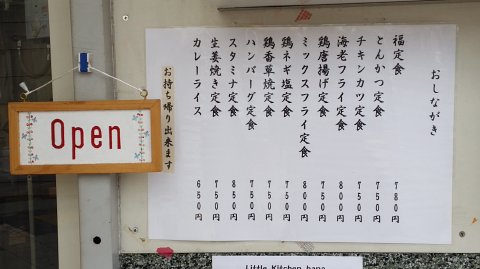 おしながき
福定食 780円
とんかつ定食 750円
チキンカツ定食 700円
海老フライ定食 800円
鶏唐揚げ定食 700円
ミックスフライ定食 800円
鶏ネギ塩定食 750円
鶏香草焼定食 750円
ハンバーグ定食 750円
スタミナ定食 850円
生姜焼き定食 700円
カレーライス 650円
お持ち帰り出来ます
Open
Little Kitchen hana